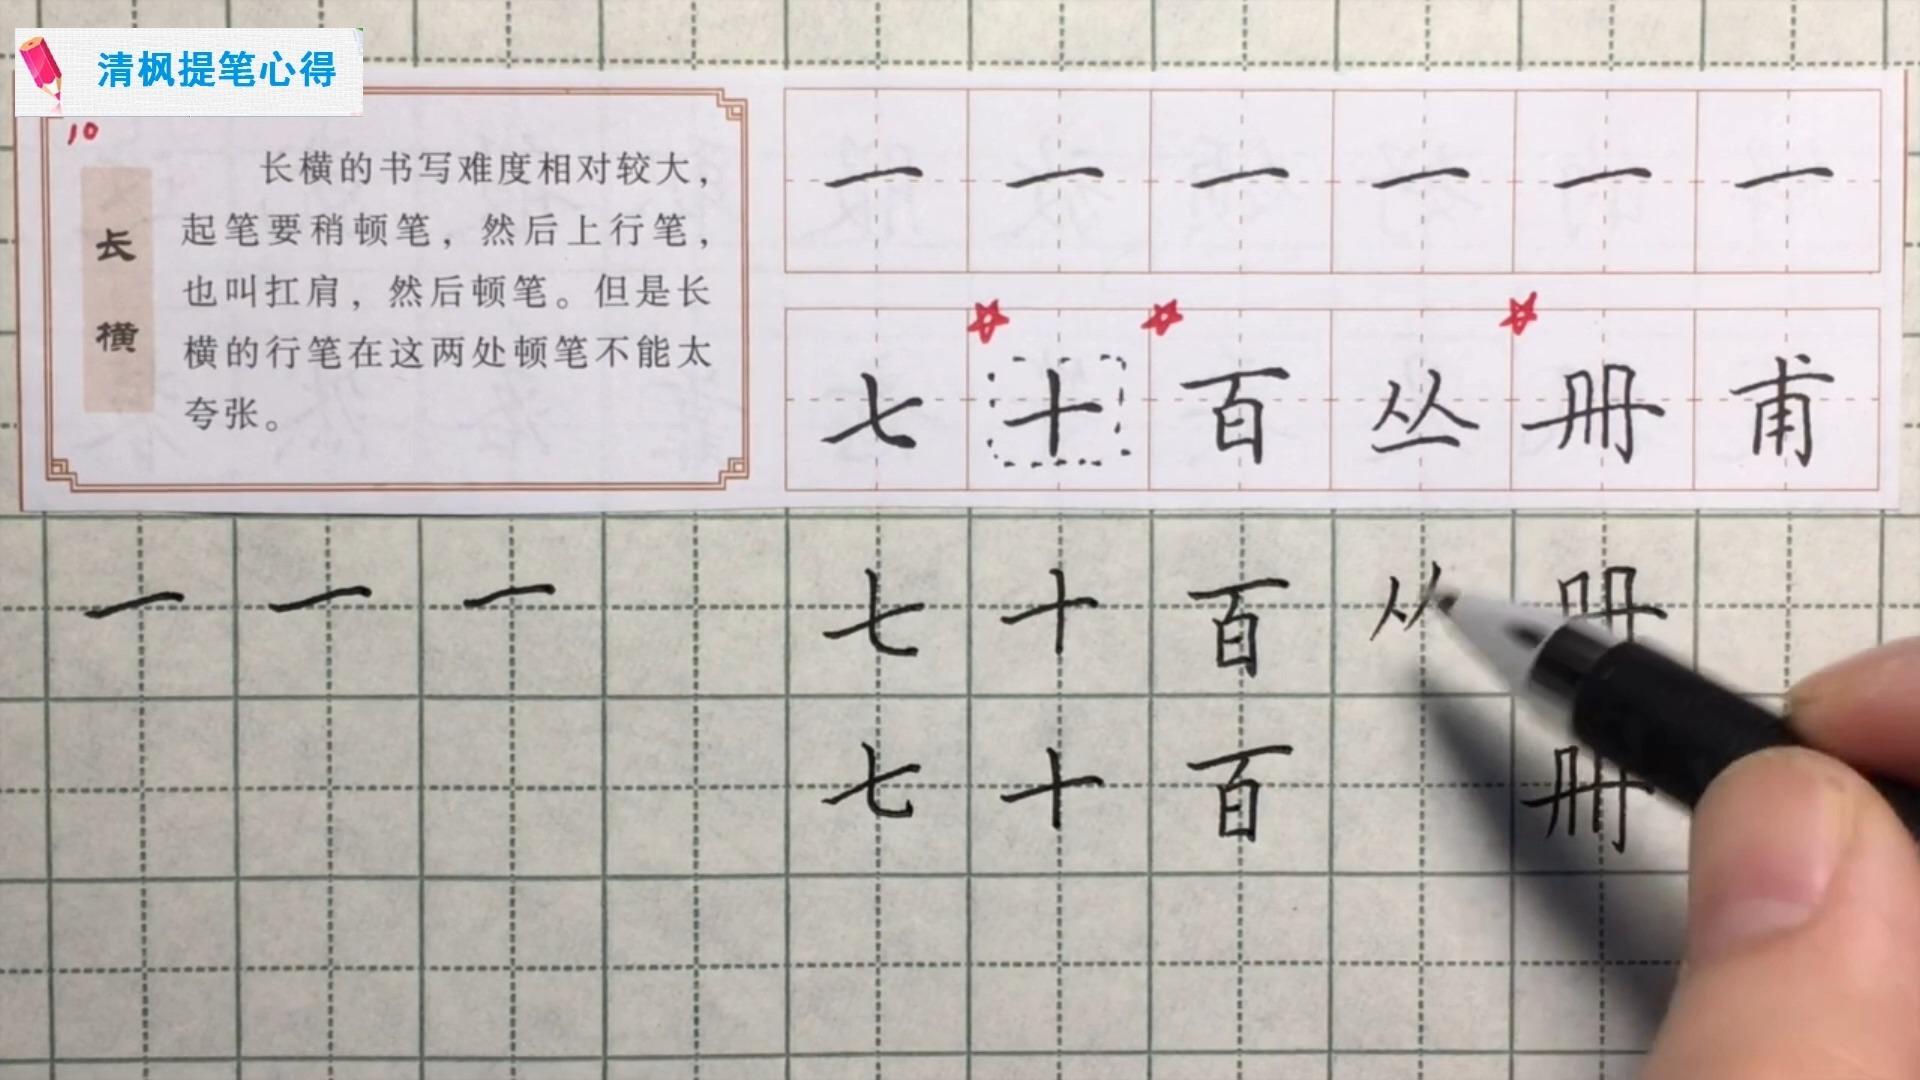 清枫提笔心得
10
长横
长横的书写难度相对较大，
起笔要稍顿笔，然后上行笔，
也叫扛肩，然后顿笔。但是长
横的行笔在这两处顿笔不能太
夸张。
一 一 一 一 一 一
七 十 百 丛 册 甫
一 一 一
七 十 百 从 册
七 十 百 册